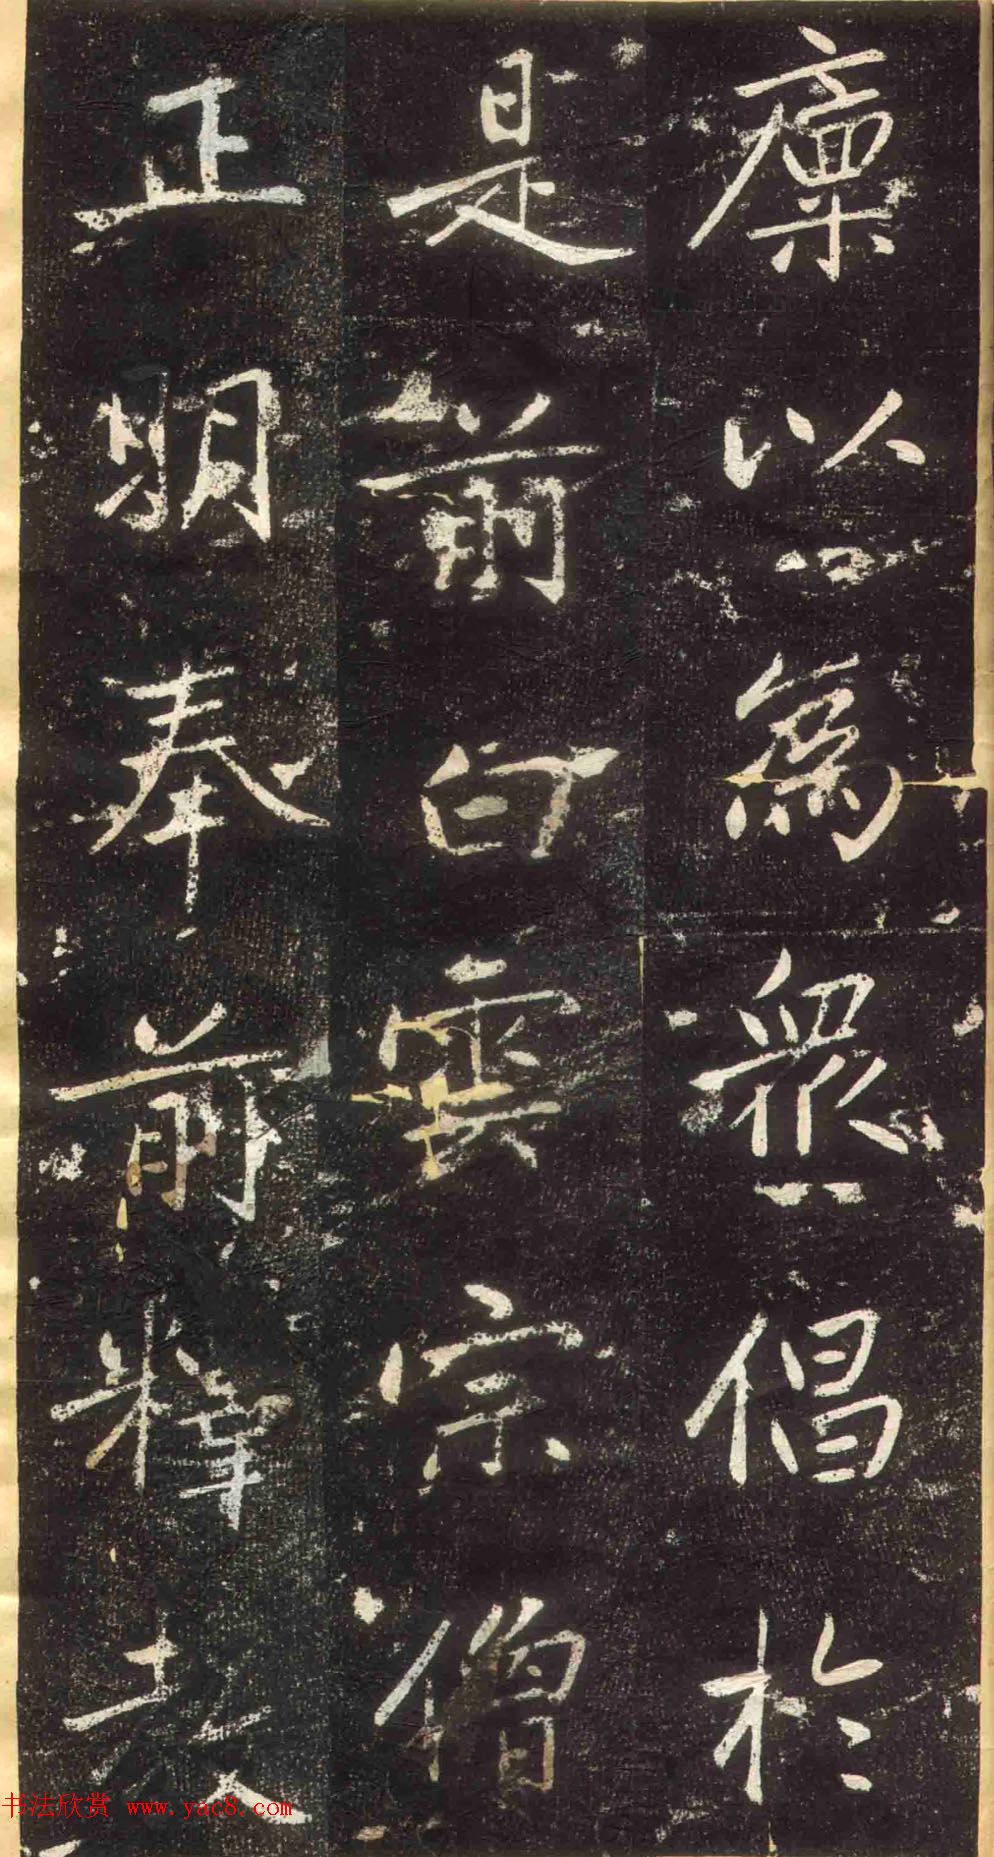 稟以爲衆倡於
是前白雲宗僧
正明奉前釋教
书法欣赏 www.yac8.com